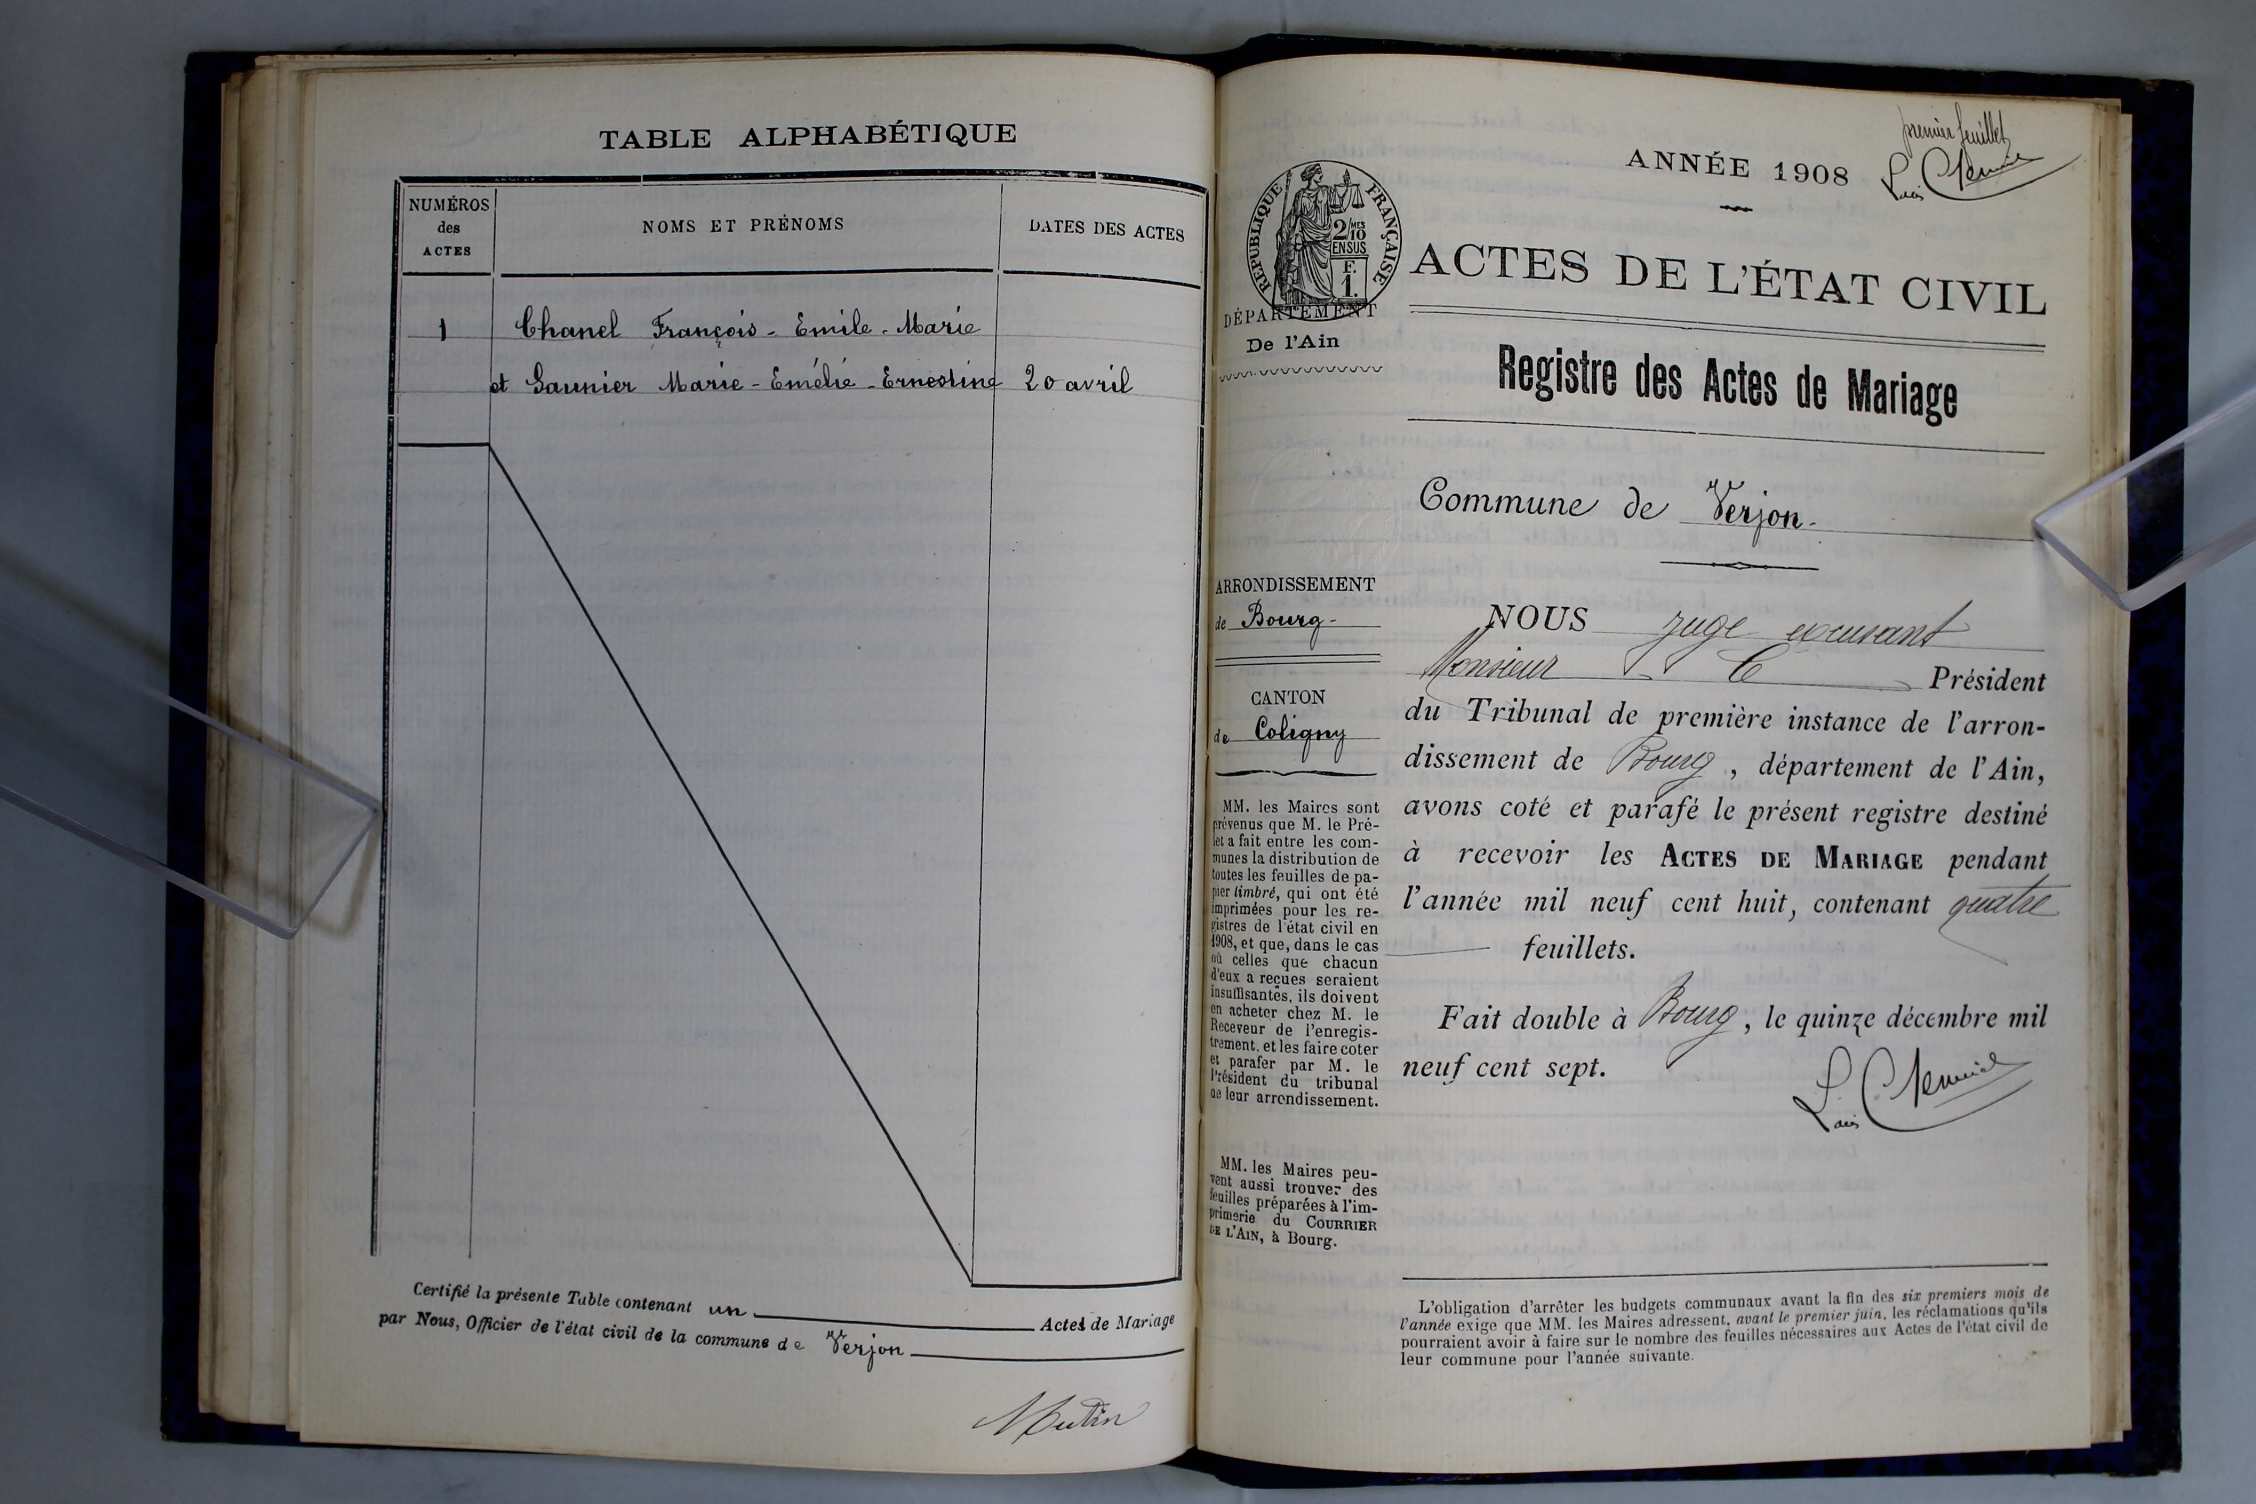 TABLE ALPHABÉTIQUE
NUMÉROS
des
ACTES
NOMS ET PRÉNOMS
DATES DES ACTES
1 Chanel François - Emile - Marie
et Saunier Marie - Emélie - Ernestine 20 avril
Certifié la présente Table contenant un Actes de Mariage
par Nous, Officier de l'état civil de la commune de Verjon
Mutin
premier feuillet
ANNÉE 1908
RÉPUBLIQUE FRANÇAISE
2/10 MES
EN SUS
F.
1.
DÉPARTEMENT
De l'Ain
ACTES DE L'ÉTAT CIVIL
Registre des Actes de Mariage
Commune de Verjon -
ARRONDISSEMENT
de Bourg -
CANTON
de Coligny
MM. les Maires sont
prévenus que M. le Pré-
fet a fait entre les com-
munes la distribution de
toutes les feuilles de pa-
pier timbré, qui ont été
imprimées pour les re-
gistres de l'état civil en
1908, et que, dans le cas
où celles que chacun
d'eux a reçues seraient
insuffisantes, ils doivent
en acheter chez M. le
Receveur de l'enregis-
trement, et les faire coter
et parafer par M. le
Président du tribunal
de leur arrondissement.
MM. les Maires peu-
vent aussi trouver des
feuilles préparées à l'im-
primerie du COURRIER
DE L'AIN, à Bourg.
NOUS juge
Monsieur Président
du Tribunal de première instance de l'arron-
dissement de Bourg, département de l'Ain,
avons coté et parafé le présent registre destiné
à recevoir les ACTES DE MARIAGE pendant
l'année mil neuf cent huit, contenant quatre
feuillets.
Fait double à Bourg, le quinze décembre mil
neuf cent sept.
L'obligation d'arrêter les budgets communaux avant la fin des six premiers mois de
l'année exige que MM. les Maires adressent, avant le premier juin, les réclamations qu'ils
pourraient avoir à faire sur le nombre des feuilles nécessaires aux Actes de l'état civil de
leur commune pour l'année suivante.